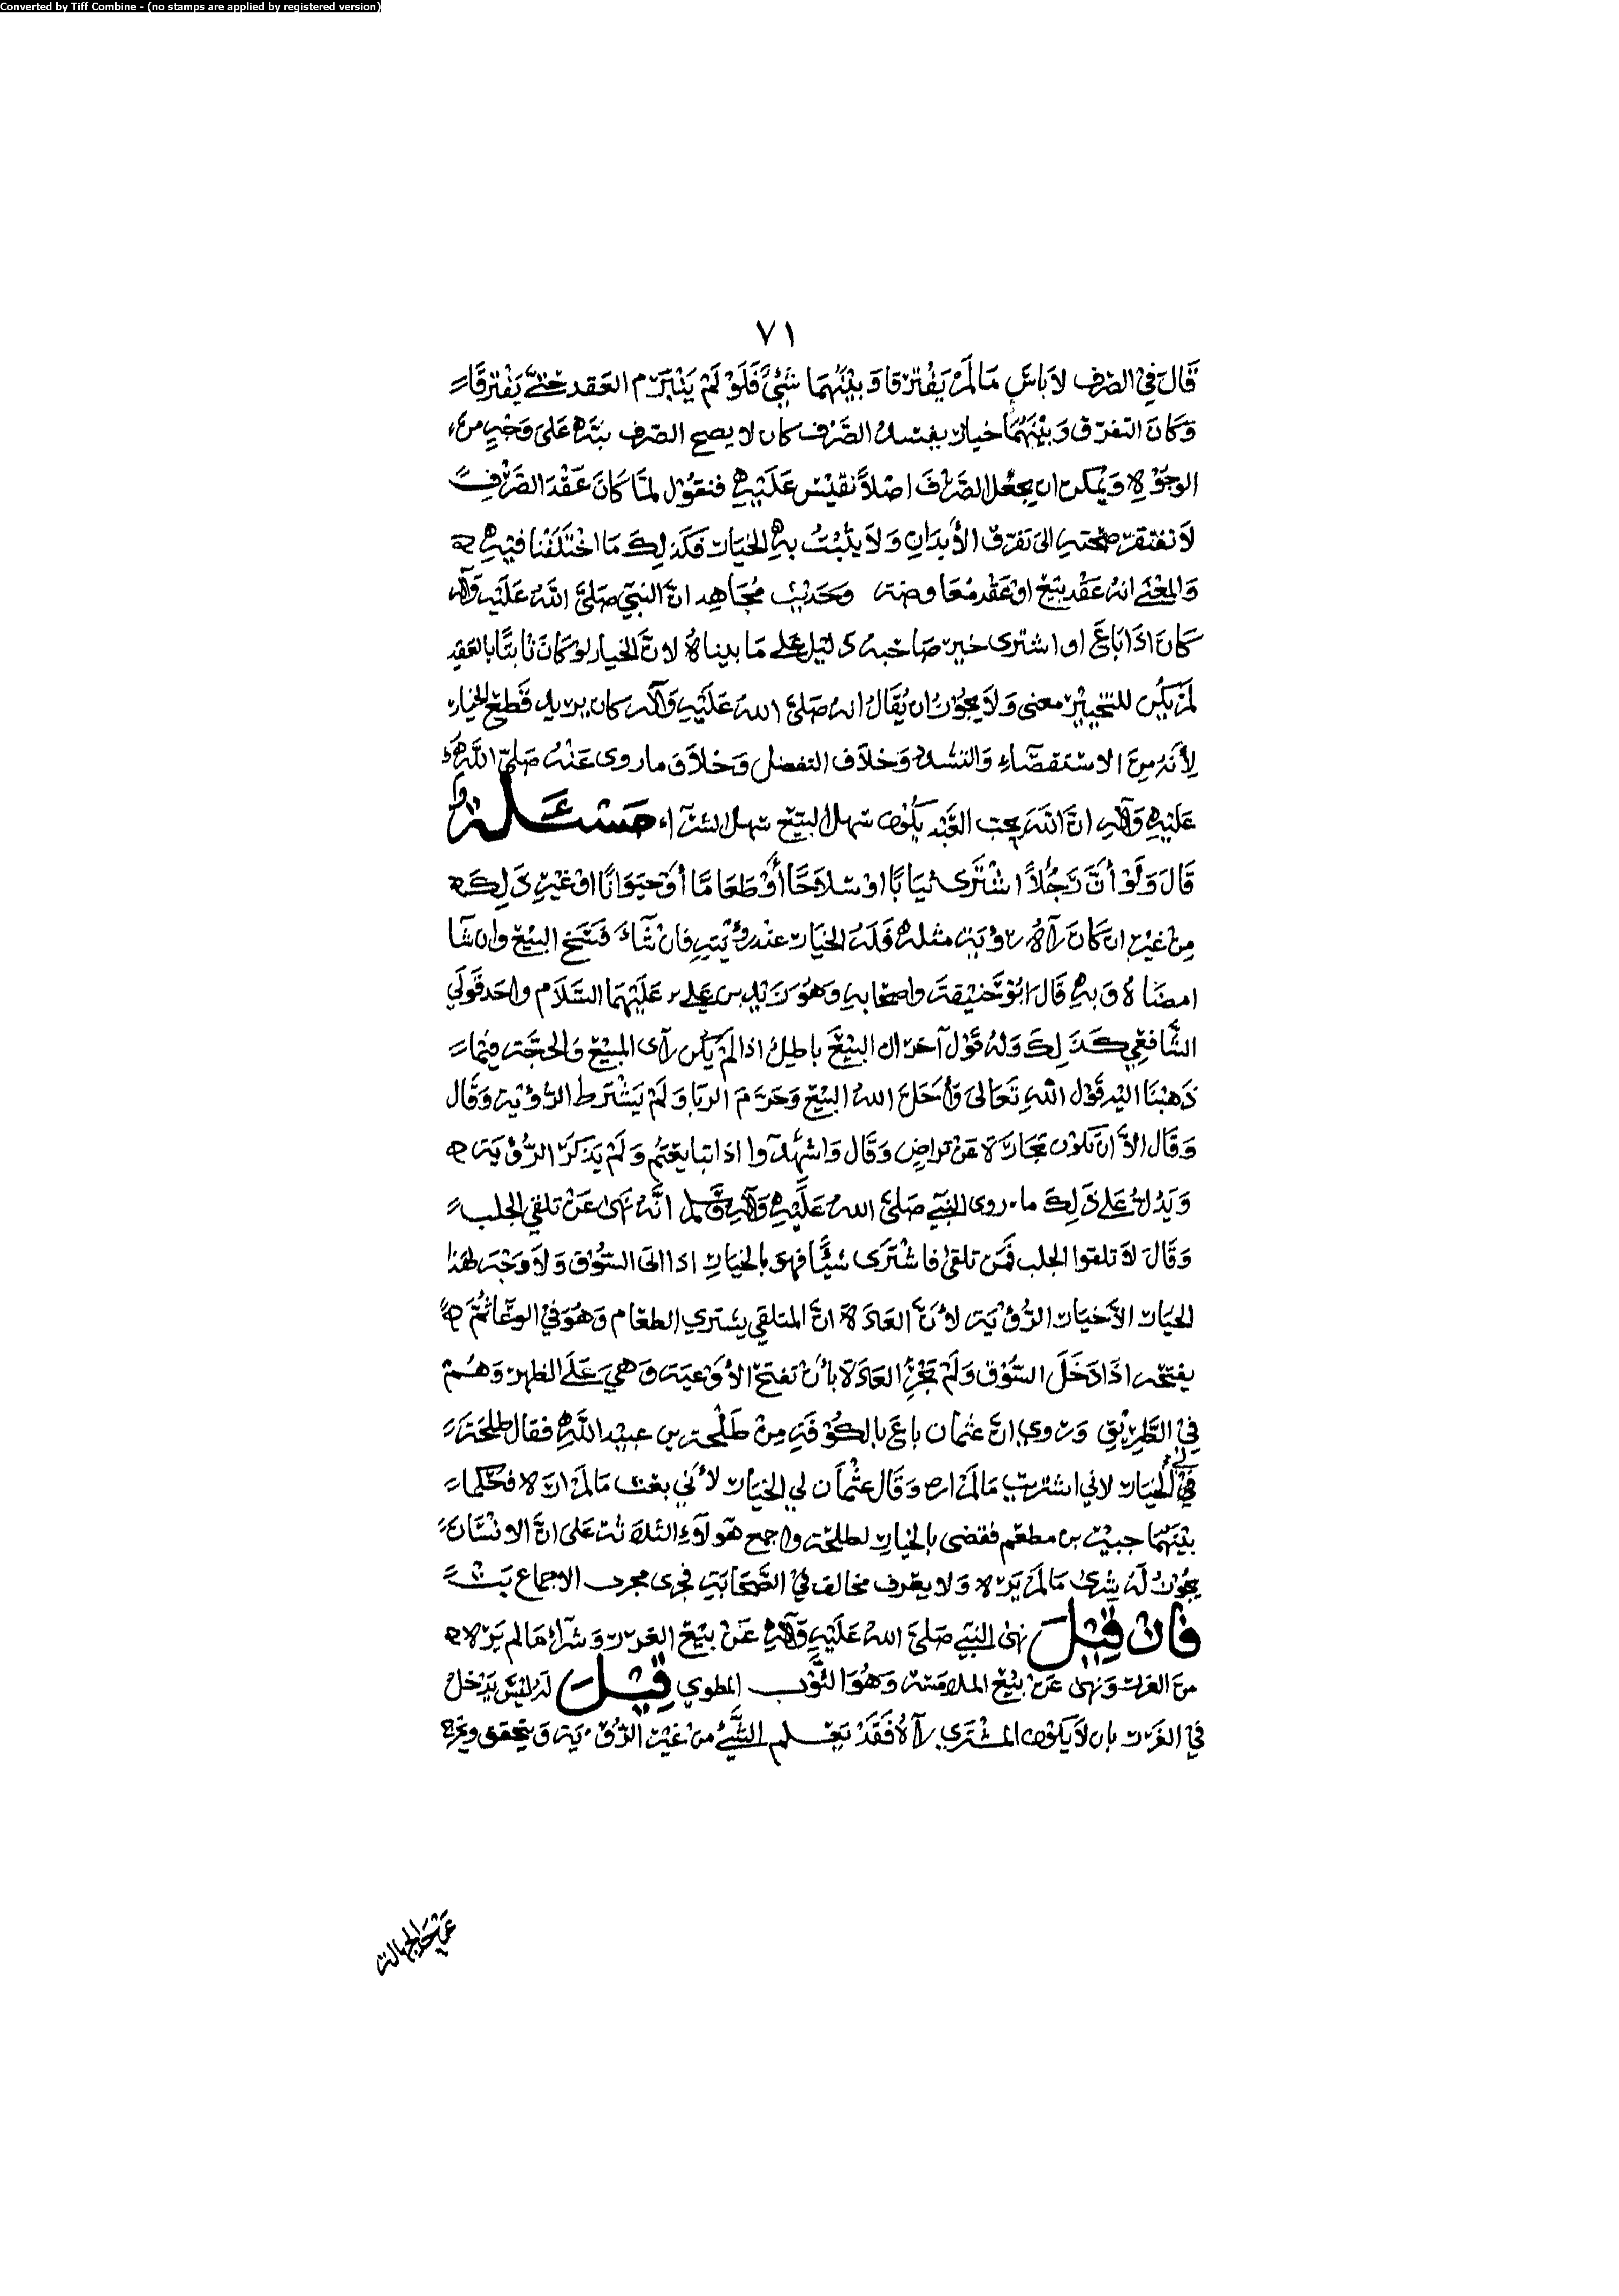 Converted by Tiff Combine - (no stamps are applied by registered version)
٧١
قَالَ في الصّرف لا بَاسَ مَا لَمْ يَفْتَرقا وَبيْنهُمَا شَئٌ فَلَوْ لَمْ يَنْبَرم العَقد حَتى يَفْترقَا
وَكانَ التفرّق وَبيْنهُمَا خيار يفسد الصَّرْف كان لا يصح الصّرف بتة عَلى وَجْهٍ من
الوجُوْه وَيمكن ان يجعَل الصَّرْفَ اصْلاً نقيْس عَلَيْه فنقوْل لمّا كَانَ عَقْدَ الصَّرْف
لا تفتقر صحته الى تفرّق الأبدَان وَلاَ يثْبتُ به الخيَار فكَذلِكَ مَا اخْتَلَفْنا فيْه
وَالمعْنَى انهُ عَقْد بَيْع اوْ عَقْد مُعَاوضة وَحَديْث مُجَاهِد انَّ النبيّ صَلىَّ اللهُ عَلَيْهِ وَآله
كَانَ اذَا بَاعَ او اشترى خير صَاحبه دَليْل عَلى مَا بيناهُ لانَّ الخيار لوْ كَانَ ثَابتًا بالعَقد
لَمْ يَكُن للتخييْر معنى وَلا يجوْز ان يُقَالَ انه صَلىَّ اللهُ عَلَيْهِ وَآله كان يريد قَطع الخيار
لأنه منَ الاسْتقصَاء وَالتشدد وَخلاَف التفضل وَخلاَف ما روى عَنْهُ صَلىّ اللهُ
عَليْهِ وَآلهِ انَّ اللهَ يحب العَبْد يكوْن سَهل البيْع سَهل الشرَآء مَسْئَلة
قَالَ وَلَوْ أنَّ رَجُلاً اشْتَرى ثيَابًا اوْ سلاَحًا أوْ طَعَامًا أوْ حَيَوَانًا اوْ غيْر ذَلِكَ
مِنْ غيْر ان كَانَ رَآهُ رؤية مثله فَلَهُ الخيَار عند رؤْيَتهِ فان شَآءَ فسَخ البيْع وان شَآءَ
امضَاهُ وَبه قَالَ ابُوْ حَنيْفةَ واصحَابه وَهُوَ زَيْد بن عَلي عَلَيْهمَا السَّلاَم واحد قَولَي
الشَّافعِي كَذَلِكَ وَلهُ قَوْل آخر ان البيْعَ باطلٌ اذا لمْ يَكُن رآى المبيْع وَالحجَّة فيْمَا
ذَهبْنَا اليْه قَوْل اللهِ تَعَالىَ وَأحَلَّ اللهُ البيْعَ وَحَرَّمَ الربَا وَلَمْ يَشْتَرط الرُّؤيَة وَقَال
وَقَال الاَّ انْ تَكوْن تجَارَةً عَنْ تراضٍ وَقَال وَاشْهدُوا اذا تبَايَعْتُم وَلَمْ يَذكَر الرُّؤيَة
وَيَدُلُّ عَلى ذَلِكَ ما روى النبيَّ صَلىَّ اللهُ عَلَيْهِ وَآلِهِ وَسلم انَّهُ نهَى عَنْ تلقي الجلب
وَقَالَ لاَ تلقوا الجلب فَمَنْ تلقى فاشْتَرى شيْئًا فهوَ بالخيَارِ اذا اتى السُّوْق وَلاَ وَجْهَ لهَذا
الخيَار الاَّ خيَار الرُّؤْيَة لأَنَّ العَادَة انَّ المتلقي يشتري الطعَام وَهُوَ في الوعَاء ثُمَّ
يفتحه اذَا دَخَلَ السُّوْق وَلَمْ تجر العَادَة بأنْ تفتح الأَوْعيَة وَهيَ عَلَى الظهر وَهُمْ
في الطَّريْق وَروي انَّ عثمان باعَ بالكُوْفَةِ مِنْ طَلْحَة بن عبيْد اللهِ فقال طلحَة
لي الخيَار لاني اشتريت مَا لَمْ ارَه وَقَال عثْمَان لي الخيَار لأنّي بعت مَا لَمْ ارَه فحكمَا
بيْنهما جبيْر بن مطعم فقضى بالخيَار لطلحَة واجمع هَؤلآء الثلاَثة عَلى انَّ الانْسَان
يجُوْز لَهُ شرى مَا لَمْ يَرَه وَلا يعْرف مخالف في الصَّحَابَةِ فجرى مجرى الاجماع
فَان قيْلَ نهى النبي صَلىَّ اللهُ عَلَيْهِ وَآلِهِ عَنْ بيْع الغرَر وَشرَاء مَا لم يَره
منَ الغرَر وَنهى عَنْ بَيْع الملامَسَة وَهُوَ الثَّوْب المطوي قِيْلَ لَهُ ليْسَ يَدْخل
في الغَرَر بان لاَ يَكوْن المشْتَري رَآهُ فَقَدْ يَعْلم الشَّيْءُ منْ غيْر الرُّؤيَة وَيتحقق وَيخرج
عَنْ حَدّ الجهَالة